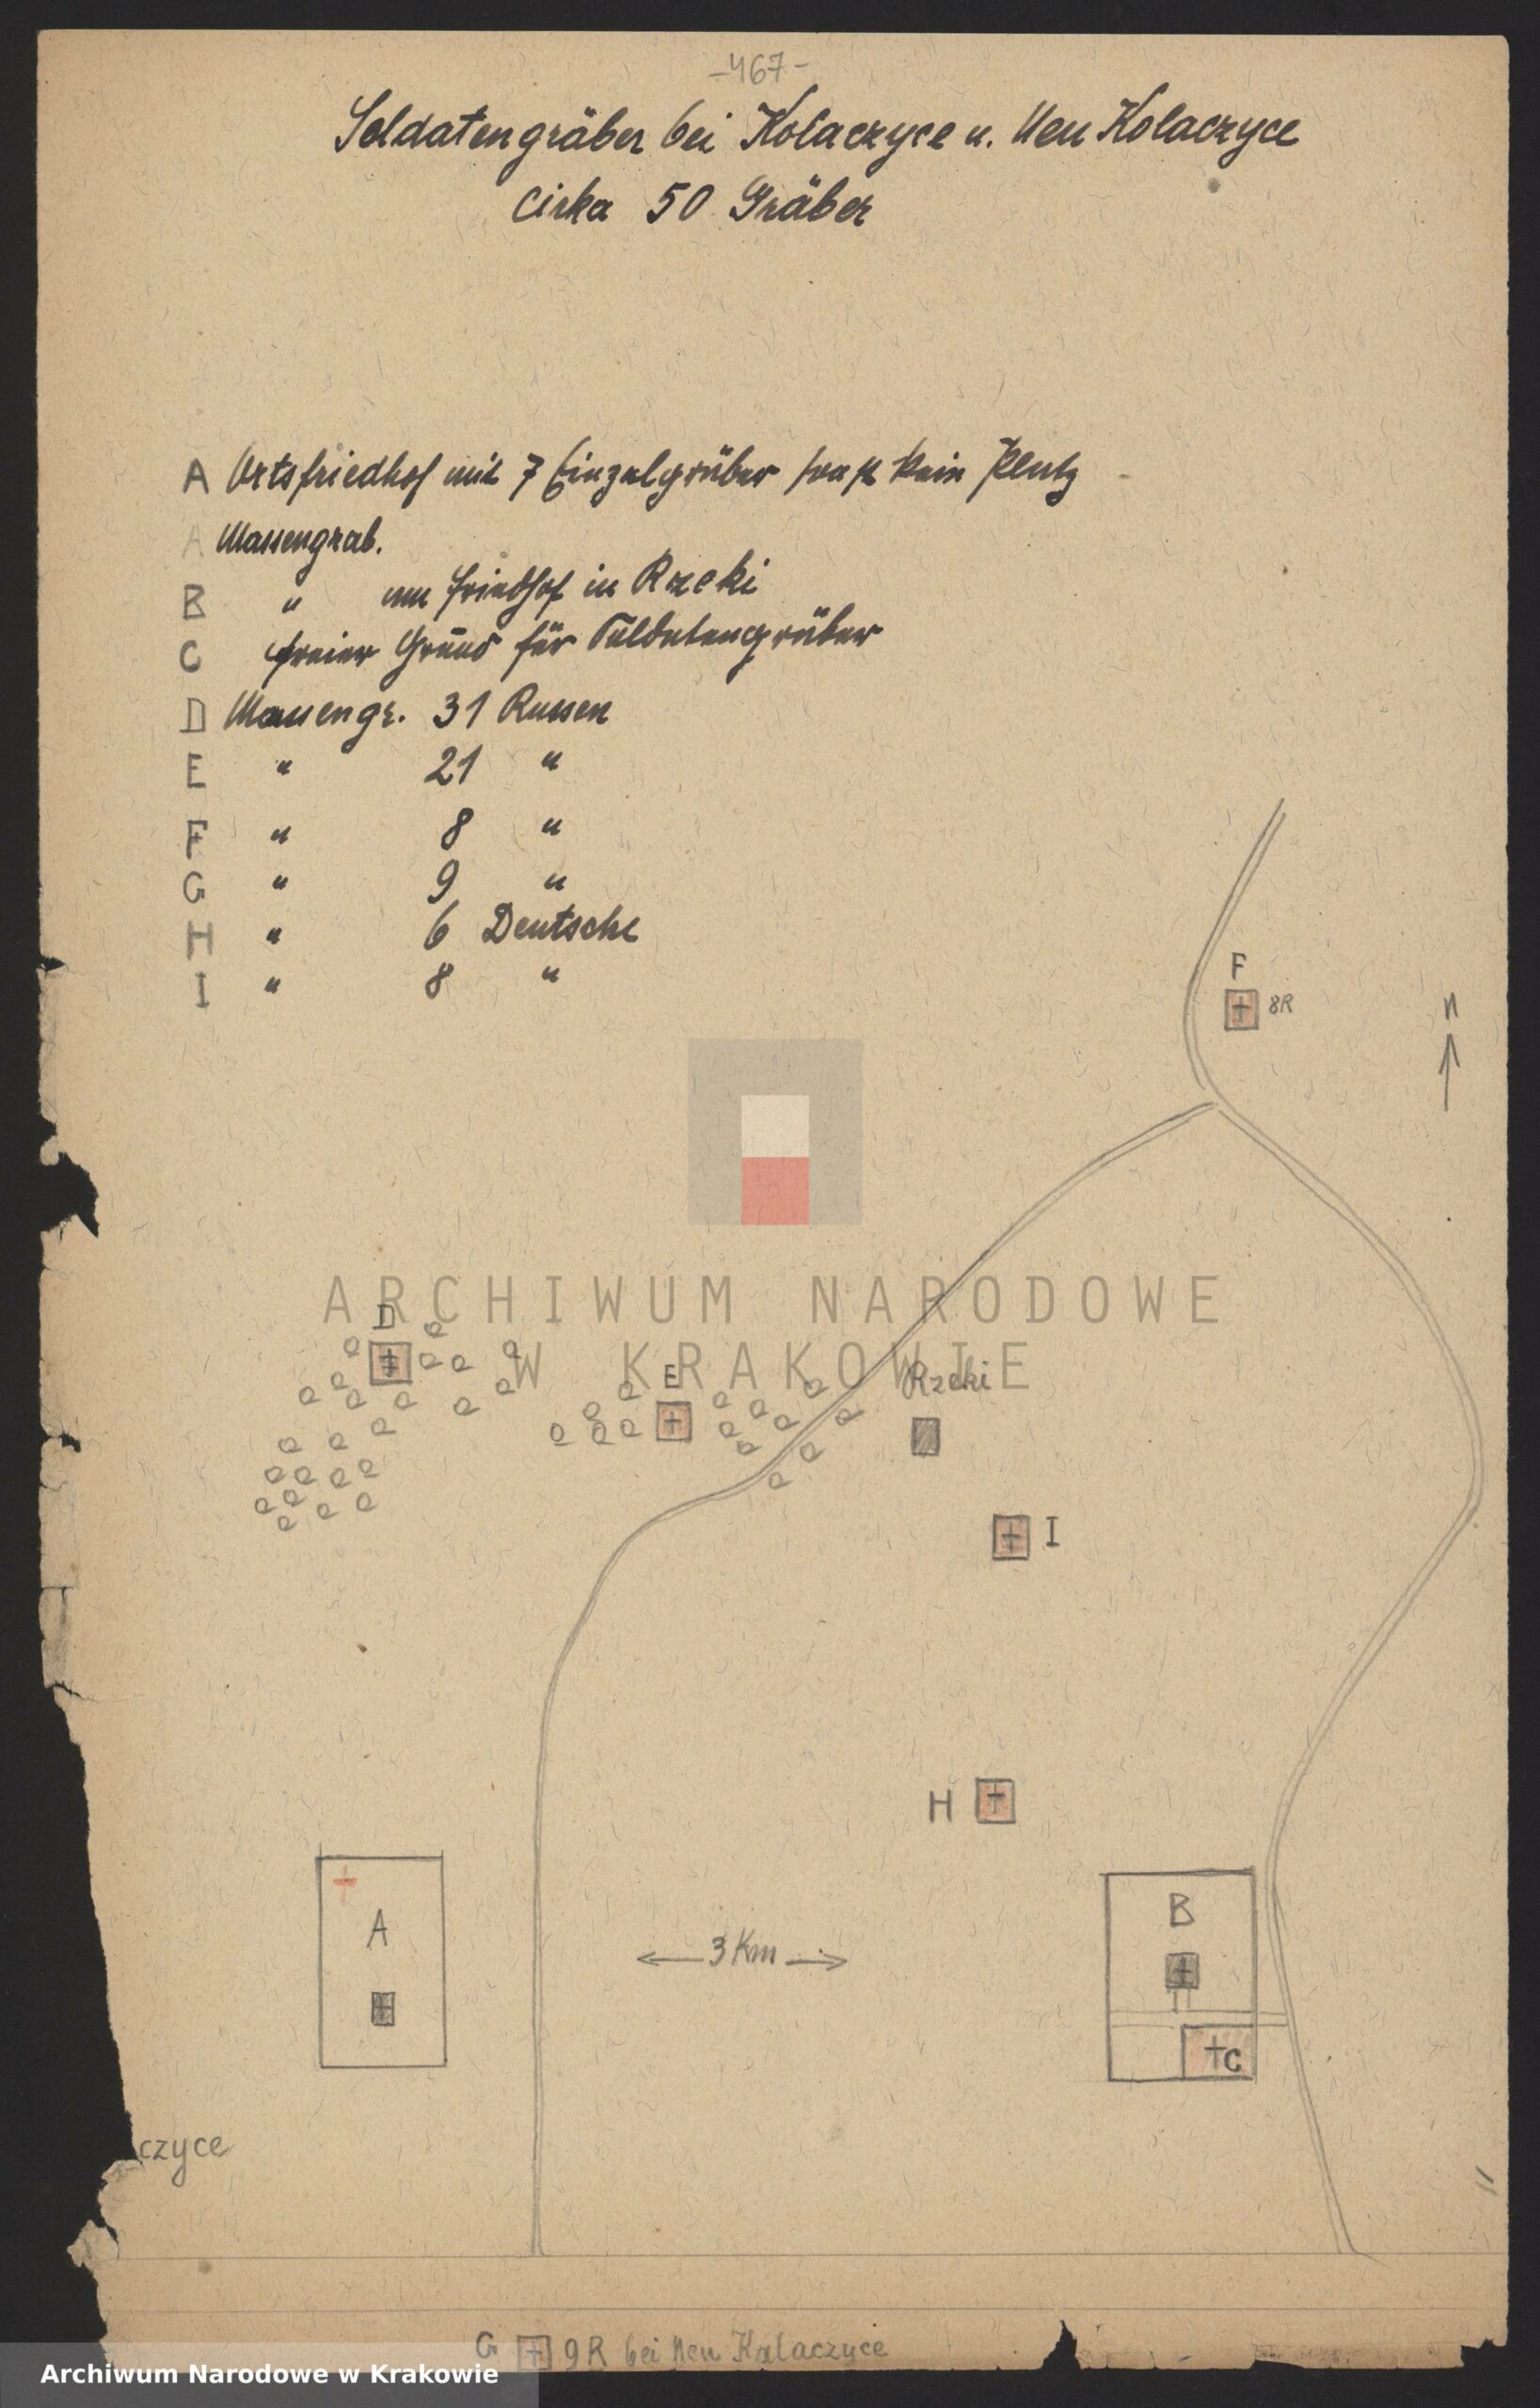 -467-
Soldatengräber bei Kolaczyce u. Neu Kolaczyce
cirka 50 Gräber
A Ortsfriedhof mit 7 Einzelgräber sonst kein Platz
A Massengrab.
B " am Friedhof in Rzeki
C freier Grund für Soldatengräber
D Massengr. 31 Russen
E " 21 "
F " 8 "
G " 9 "
H " 6 Deutsche
I " 8 "
F
8R
n
ARCHIWUM NARODOWE
W KRAKOWIE
D
E
Rzeki
I
H
A
3 Km
B
C
czyce
G 9R bei Neu Kolaczyce
Archiwum Narodowe w Krakowie